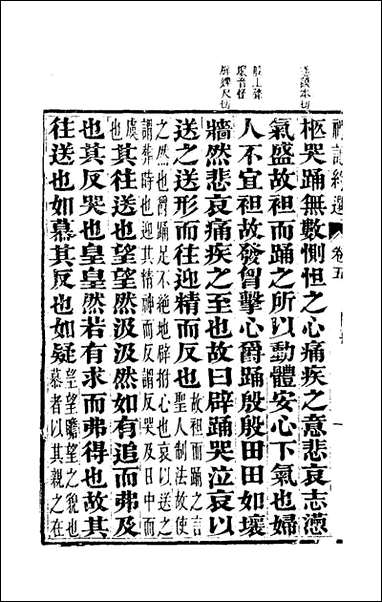 殷上聲
壞音怪
辟婢尺切
禮記約選 卷五
柩哭踊無數惻怛之心痛疾之意悲哀志懣
氣盛故袒而踊之所以動體安心下氣也婦
人不宜袒故發胷擊心爵踊殷殷田田如壞
牆然悲哀痛疾之至也故曰辟踊哭泣哀以
送之送形而往迎精而反也故袒而踊之言
聖人制法故使
之然也爵踊足不絶地辟拊心也哀以送之
謂葬時也迎其精神而反謂反哭及日中而
虞其往送也望望然汲汲然如有追而弗及
也其反哭也皇皇然若有求而弗得也故其
往送也如慕其反也如疑望望瞻望之貌也
慕者以其親之在